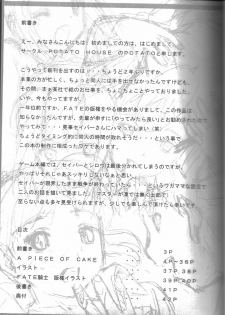 前書き
えー、みなさんこんにちは、初めましての方は、はじめまして
サークル POTATO HOUSE のPOTATOと申します。
こうやって新刊を出すのは・・・ちょうど２年ぶり・・・
本業の方が忙しくて、ちょっと同人には手を出せなかったんですけども、
その間、まぁ某社で絵のお仕事を、ちょこちょことやっておりました。
いや、今もやってますが。
一年位前ですか、FATEの版権をやる機会がありまして、この作品は
知らなかったんですが、先輩が実に「やってみたら」とお勧めされたので
やってみたら・・・見事セイバーさんにハマってしまい（笑）
ちょうどタイミング的に同人の時間が取れそうだ・・・という事で
この本の制作に相成ったワケであります。
ゲーム本編では、セイバーとシロウは最後分かれてしまうのですが、
やっぱりそれじゃあスッキリしないなぁと思い
セイバーが限界したまま戦争が終わっていたら・・・というワガママな設定で
二人のお話を描いて策ました／マスターが凛では無のも仕様で
至らない点も多々見受けられますが、少しでも楽しんで頂けたら幸いです
目次
前書き 3P
A PIECE OF CAKE 4P〜36P
イラスト 37P,38P
FATE騎士 版権イラスト 39P,40P
後書き 41P
奥付 42P